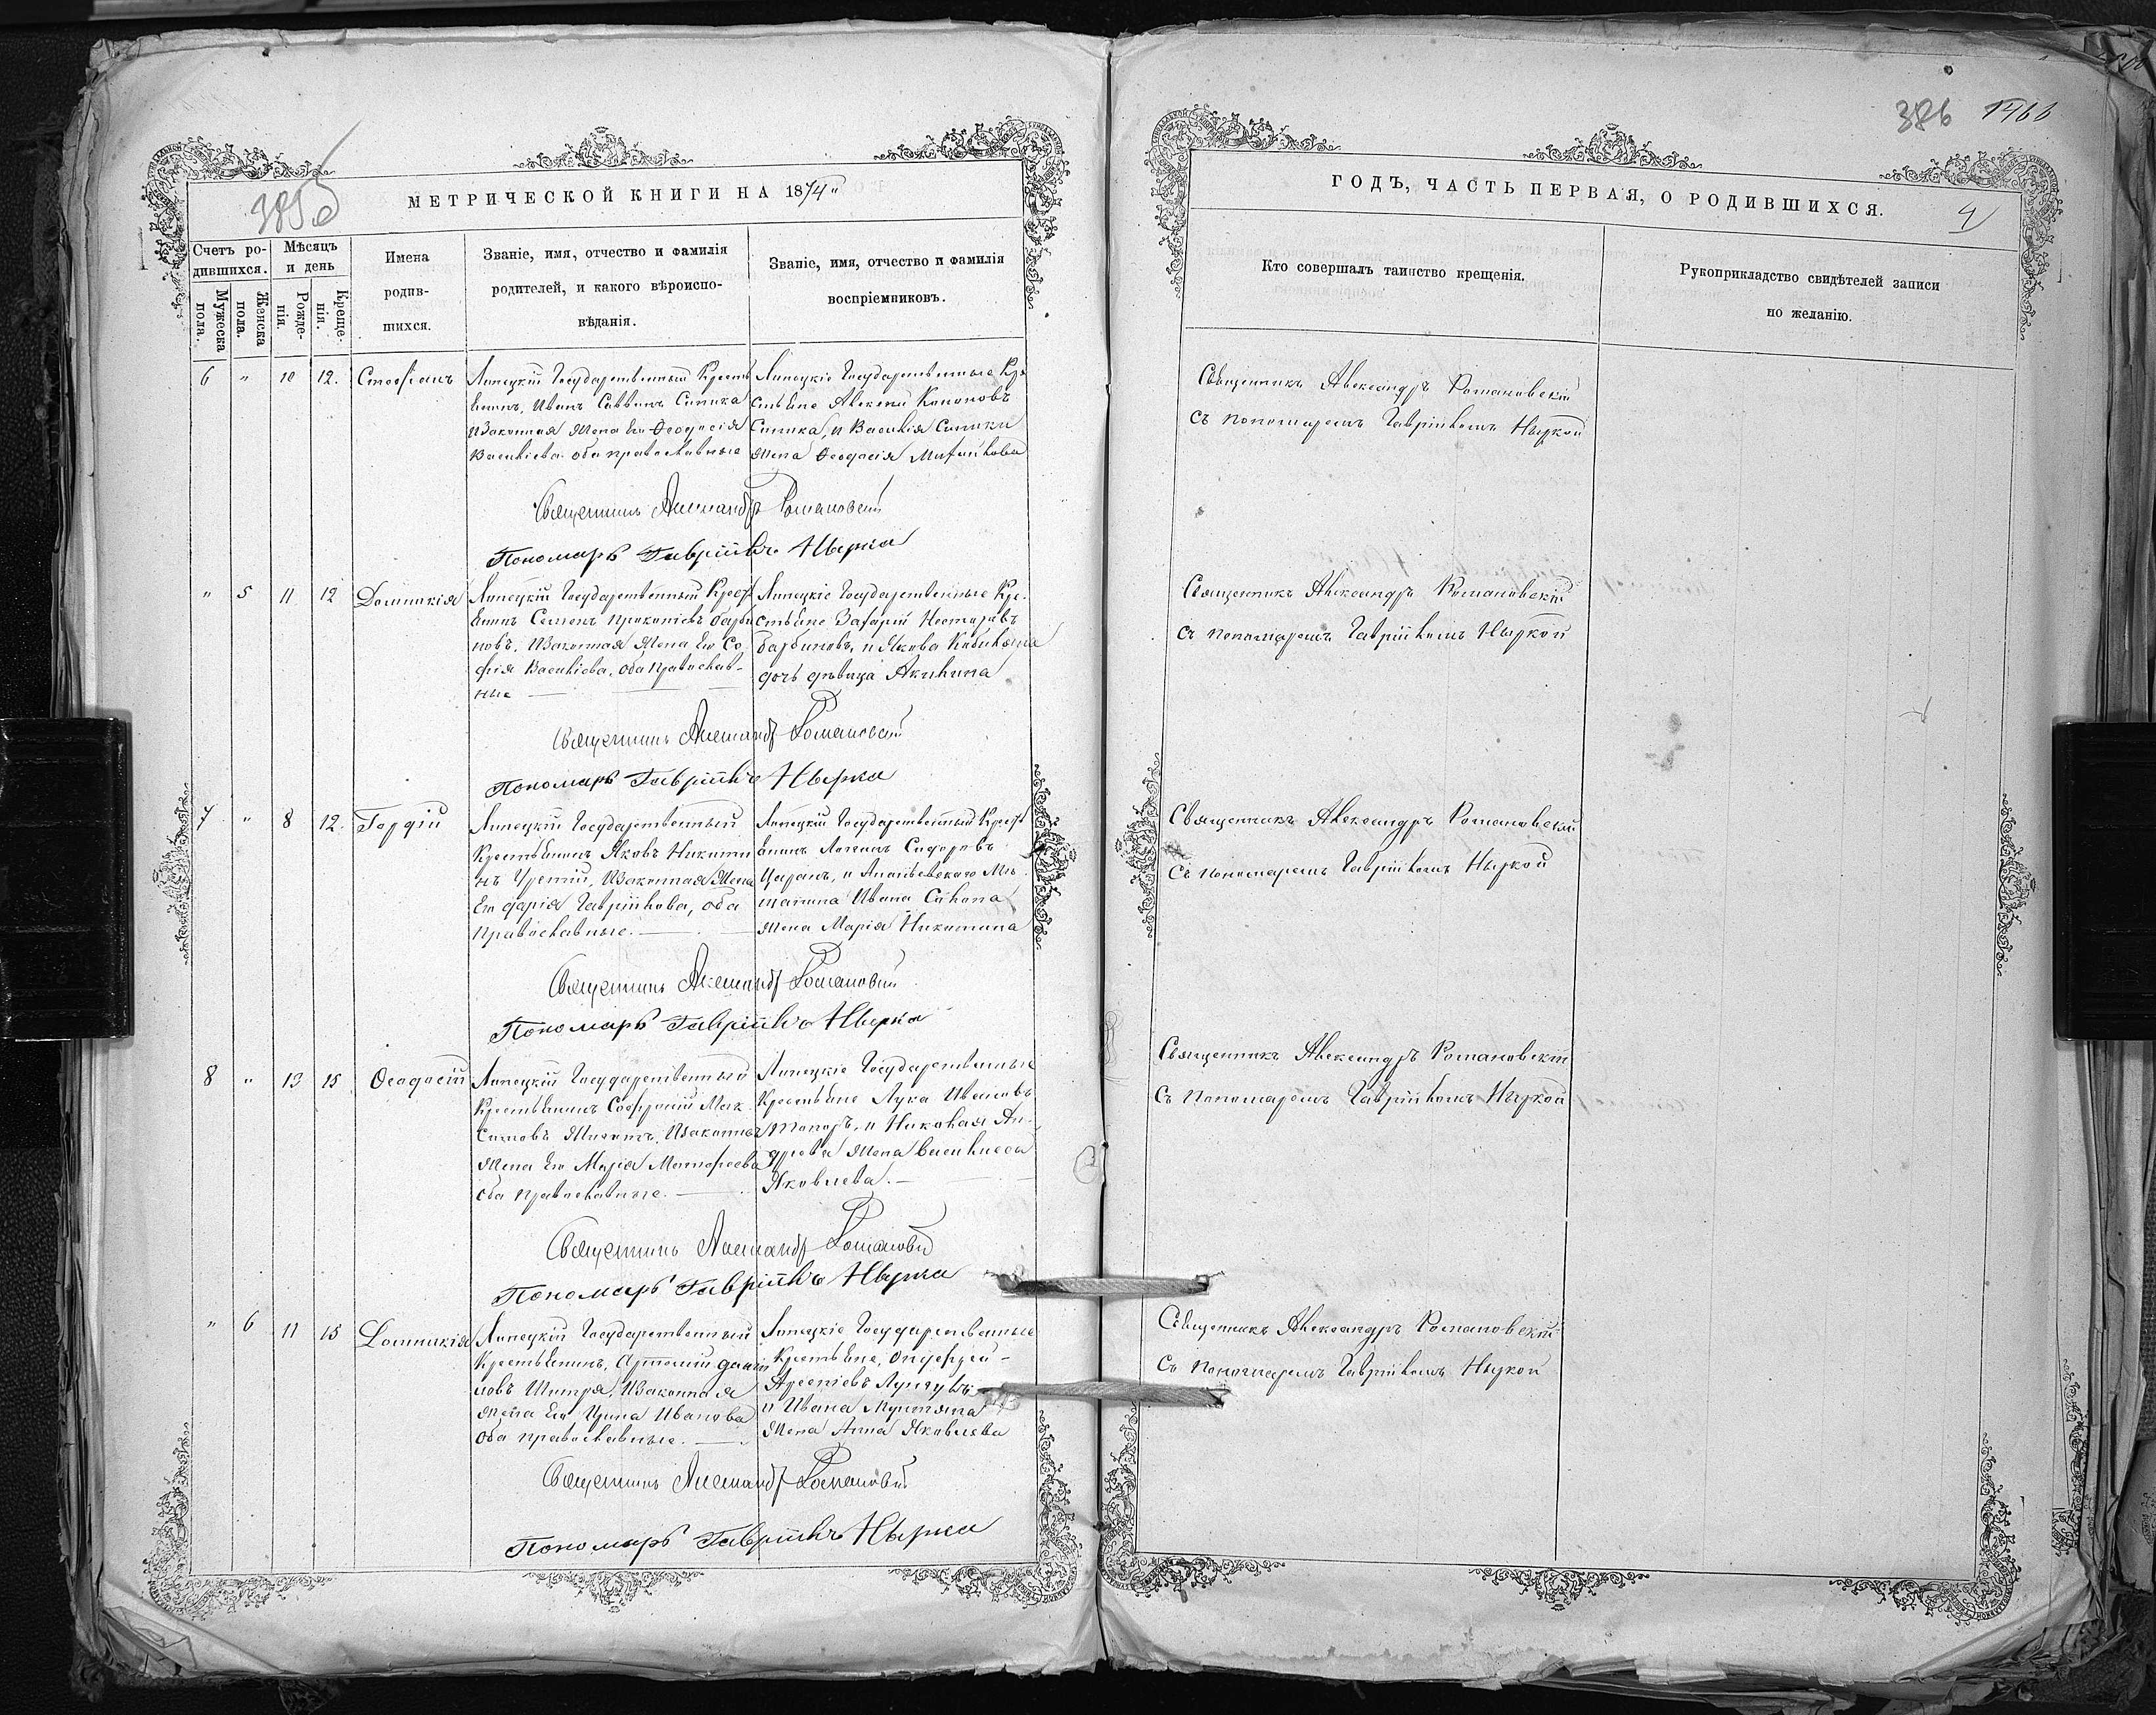 385 б
МЕТРИЧЕСКОЙ КНИГИ НА 1874
Счетъ ро-
дившихся.
Мужеска
пола.
Женска
пола.
Мѣсяцъ
и день
Рожде-
нія.
Креще-
нія.
Имена
родив-
шихся.
Званіе, имя, отчество и фамилія
родителей, и какого вѣроиспо-
вѣданія.
Званіе, имя, отчество и фамилія
воспріемниковъ.
6 " 10 12. Стефанъ
Липецкій Государственный Кресть
янинъ, Иванъ Саввинъ Синика
и Законная Жена Его Феодосія
Василіева. оба православные
Липецкіе Государственные Кре
стьяне Алексѣй Кононовъ
Синика, и Василія Синики
Жена Феодосія Михайлова
Священникъ Александръ Романовскій
Пономарь Гавріилъ Нырка
" 5 11 12 Домникія
Липецкій Государственный Крест
янинъ Семенъ Прокопіевъ Барби
новъ, И Законная Жена Его Со
фія Василіева, оба Православ-
ные
Липецкіе Государственные Кре-
стьяне Захарій Несторовъ
Барбиновъ, и Якова
дочь дѣвица Акилина
Священникъ Александръ Романовскій
Пономарь Гавріилъ Нырка
7 " 8 12. Гордій
Липецкій Государственный
Крестьянинъ Яковъ Никити
нъ И Законная Жена
Его Дарія Гавріилова, оба
Православные.
Липецкій Государственный Крест
янинъ Логинъ Сидоровъ
Цыранъ, и Ананьевскаго Мѣ
щанина Ивана
Жена Марія Никитина
Священникъ Александръ Романовскій
Пономарь Гавріилъ Нырка
8 " 13 15 Феодосій
Липецкій Государственный
Крестьянинъ Софроній Мак
симовъ И Законная
Жена Его Марія Матфеева
оба Православные.
Липецкіе Государственные
Крестьяне Лука Ивановъ
Топоръ, и Николая Ан-
дреева Жена Василиса
Яковлева.
Священникъ Александръ Романовскій
Пономарь Гавріилъ Нырка
" 6 11 15 Домникія
Липецкій Государственный
Крестьянинъ, Артемій Дани
ловъ И Законная
Жена Его Ирина Иванова
Оба православные.
Липецкіе Государственные
Крестьяне, Онуфрей
Арсеніевъ
и Ивана Мунтяна
Жена Анна Яковлева
Священникъ Александръ Романовскій
Пономарь Гавріилъ Нырка
386 1466
ГОДЪ, ЧАСТЬ ПЕРВАЯ, О РОДИВШИХСЯ.
4
Кто совершалъ таинство крещенія.
Рукоприкладство свидѣтелей записи
по желанію.
Священникъ Александръ Романовскій
съ пономаремъ Гавріиломъ Ныркой
Священникъ Александръ Романовскій
съ пономаремъ Гавріиломъ Ныркой
Священникъ Александръ Романовскій
Съ пономаремъ Гавріиломъ Ныркой
Священникъ Александръ Романовскій
Съ Пономаремъ Гавріиломъ Ныркой
Священникъ Александръ Романовскій
Съ Пономаремъ Гавріиломъ Ныркой